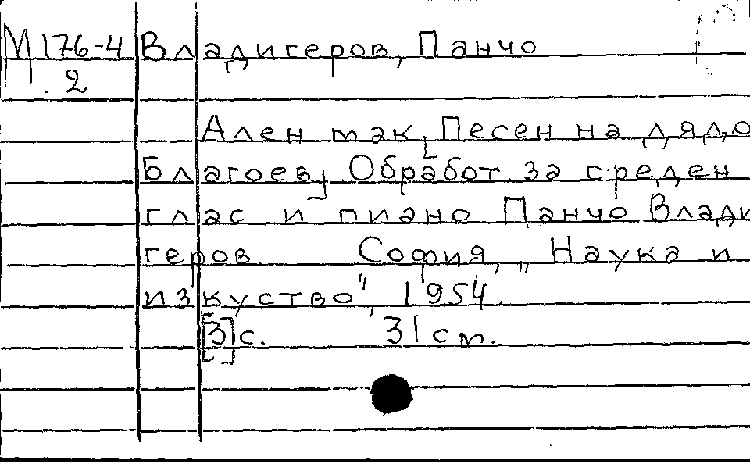 М 176-4 Владигеров, Панчо
2
Ален мак, Песен на дядо
Благоев, Обработ. за среден
глас и пиано Панчо Влади
геров. София, „Наука и
изкуство", 1954.
[3] с. 31 см.